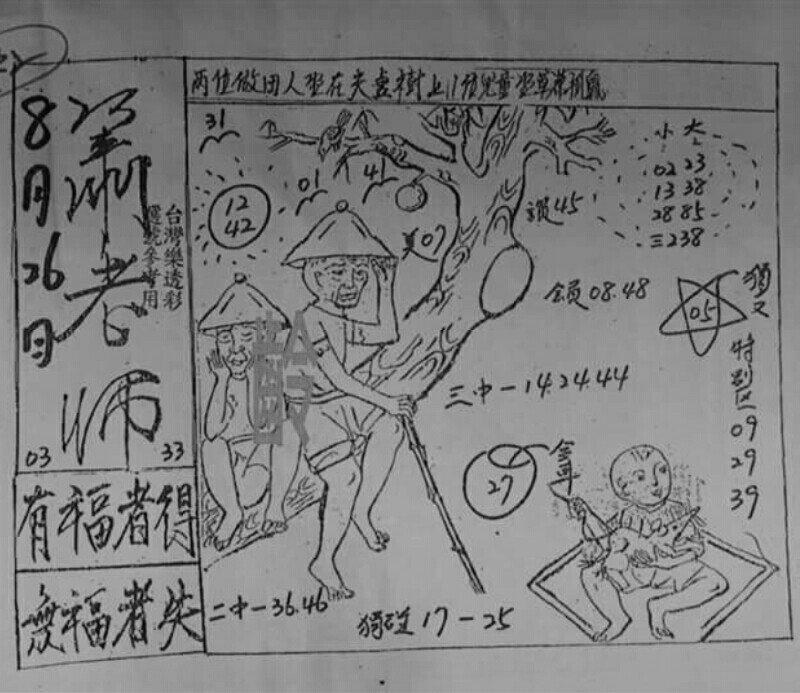 两位做田人坐在夫妻樹上11位兒童坐草蓆
8月26日
蕭老師
台灣樂透彩
選號參考用
03
33
有福者得
無福者失
31
01
41
12
42
美07
讚45
小 大
02 23
13 38
28 85
三238
独又
05
08.48
三中一14.24.44
特別区
09
29
39
27
二中一36.46
獨碰17-25